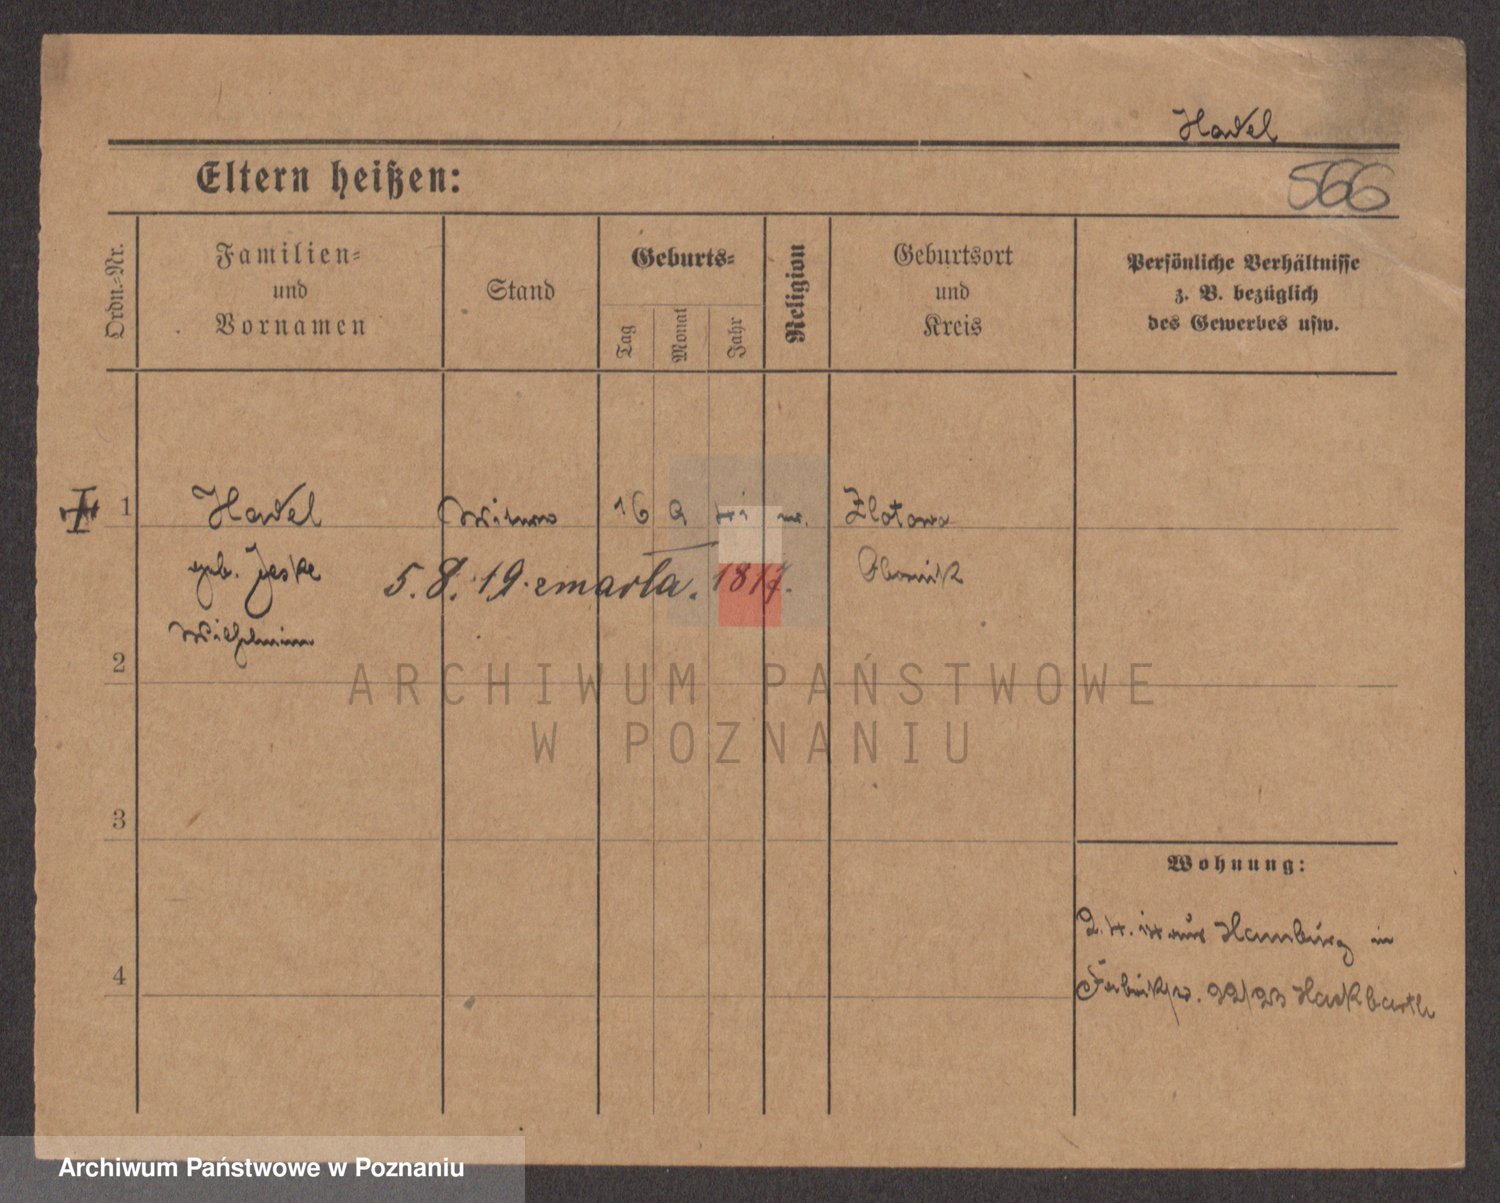 Hadel
566
Eltern heißen:
Ordn.-Nr.
Familien-
und
Vornamen
Stand
Geburts-
Tag
Monat
Jahr
Religion
Geburtsort
und
Kreis
Persönliche Verhältnisse
z. B. bezüglich
des Gewerbes usw.
1
Hadel
Witwe
16
Zlotowo
geb. Jeske
5.8.19. zmarła.
Obornik
Wilhelmine
2
ARCHIWUM PAŃSTWOWE
W POZNANIU
3
Wohnung:
aus Hamburg in
4
22/23 Hackbarth
Archiwum Państwowe w Poznaniu